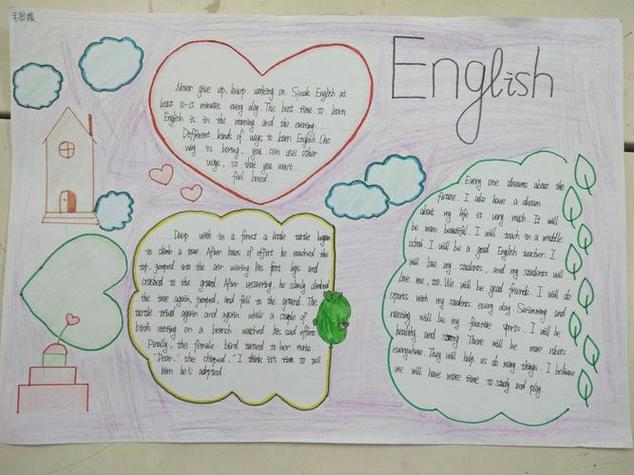 English
Never give up, keep working on. Speak English at
least 10-15 minutes every day. The best time to learn
English is in the morning and the evening.
Different kinds of ways to learn English. One
way is boring, you can use other
ways, so that you won't
feel bored.
Deep with in a forest a little turtle began
to climb a tree. After hours of effort he reached the
top, jumped into the air waving his front legs and
crashed to the ground. After recovering, he slowly climbed
the tree again, jumped, and fell to the ground. The
turtle tried again and again while a couple of
birds sitting on a branch watched his sad effort.
Finally, the female bird turned to her mate.
"Dear," she chirped. "I think it's time to tell
him he's adopted.
Every one dreams about the
future. I also have a dream
about my life is very much. It will
be more beautiful. I will teach in a middle
school. I will be a good English teacher. I
will love my students, and my students will
love me, too. We will be good friends. I will do
sports with my students every day. Swimming and
running will be my favorite sports. I will be
healthy and strong. There will be more robots
everywhere. They will help us do many things. I believe
we will have more time to study and play.